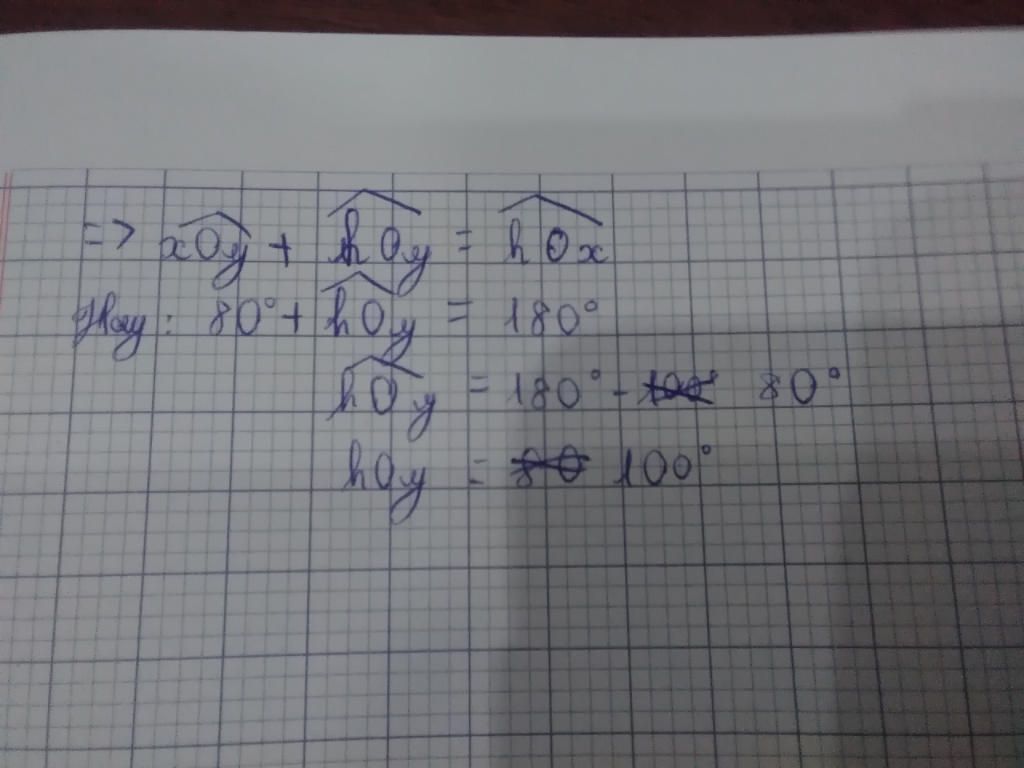 => xOy + hOy = hOx
Hay: 80° + hOy = 180°
hOy = 180° - 80°
hOy = 100°